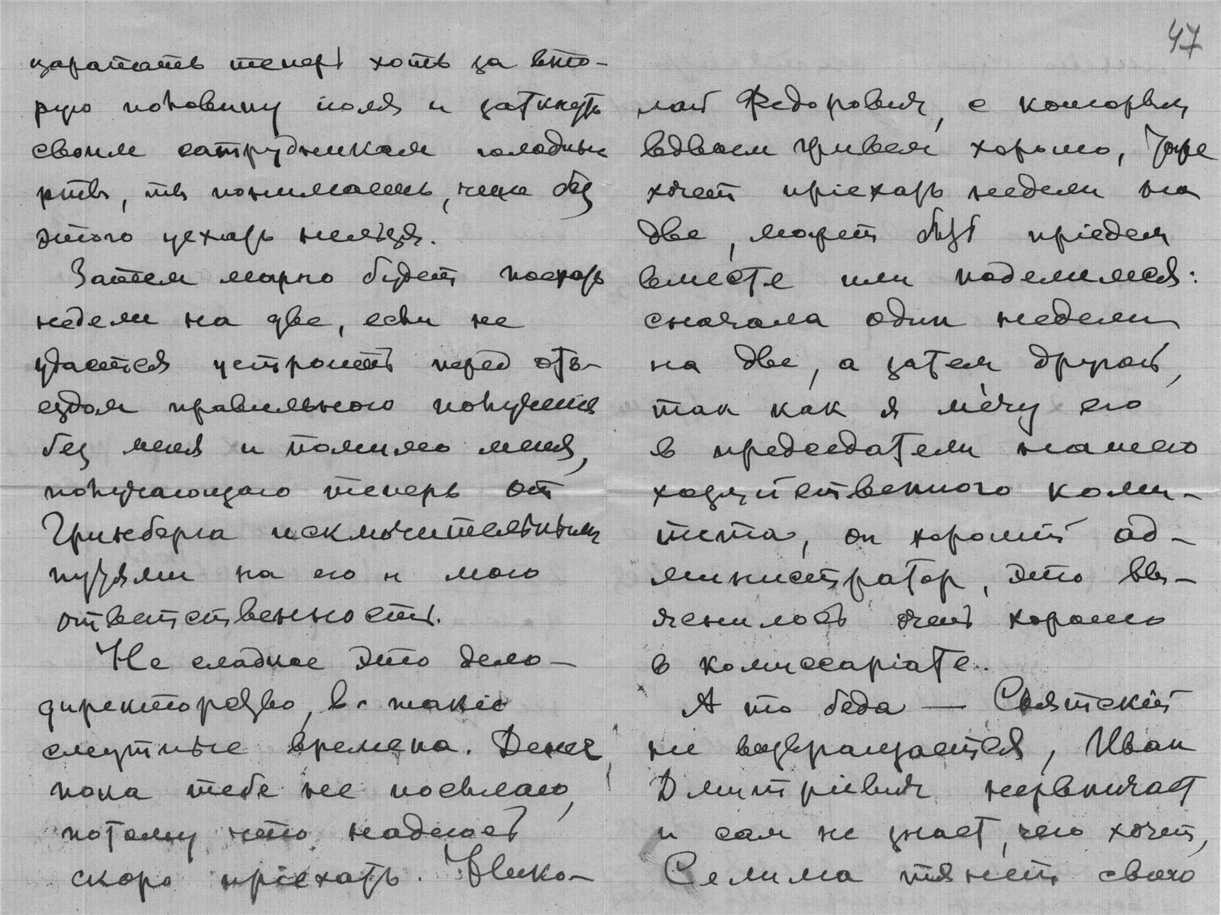 47
царапать теперь хоть за вто-
рую половину июля и заткнуть
своим сотрудникам голодные
рты, ты понимаешь, что без
этого уехать нельзя.
Затем можно будет поехать
недели на две, если не
удается устроить перед отъ-
ездом правильного получения
без меня и помимо меня,
получающаго теперь от
Гринберга исключительными
путями на его и мою
ответственность.
Не сладкое это дело –
директорство, в такие
смутные времена. Денег
пока тебе не посылаю,
потому что надеюсь
скоро приехать. Нико-
лай Федорович, с которым
вдвоем живем хорошо, тоже
хочет приехать недели на
две, может быть приедем
вместе или поделимся:
сначала один недели
на две, а затем другой,
так как я мечу его
в председатели нашего
хозяйственного коми-
тета, он хороший ад-
министратор, это вы-
яснилось очень хорошо
в комиссаріате.
А то беда — Святский
не возвращается, Иван
Дмитріевич нервничает
и сам не знает, чего хочет,
Селима тянет свою